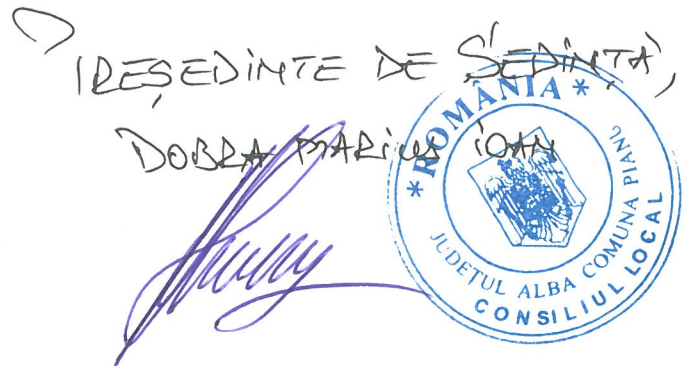 PREŞEDINTE DE ŞEDINŢĂ,
DOBRA MARIUS IOAN
* ROMÂNIA *
JUDEŢUL ALBA COMUNA PIANU
CONSILIUL LOCAL